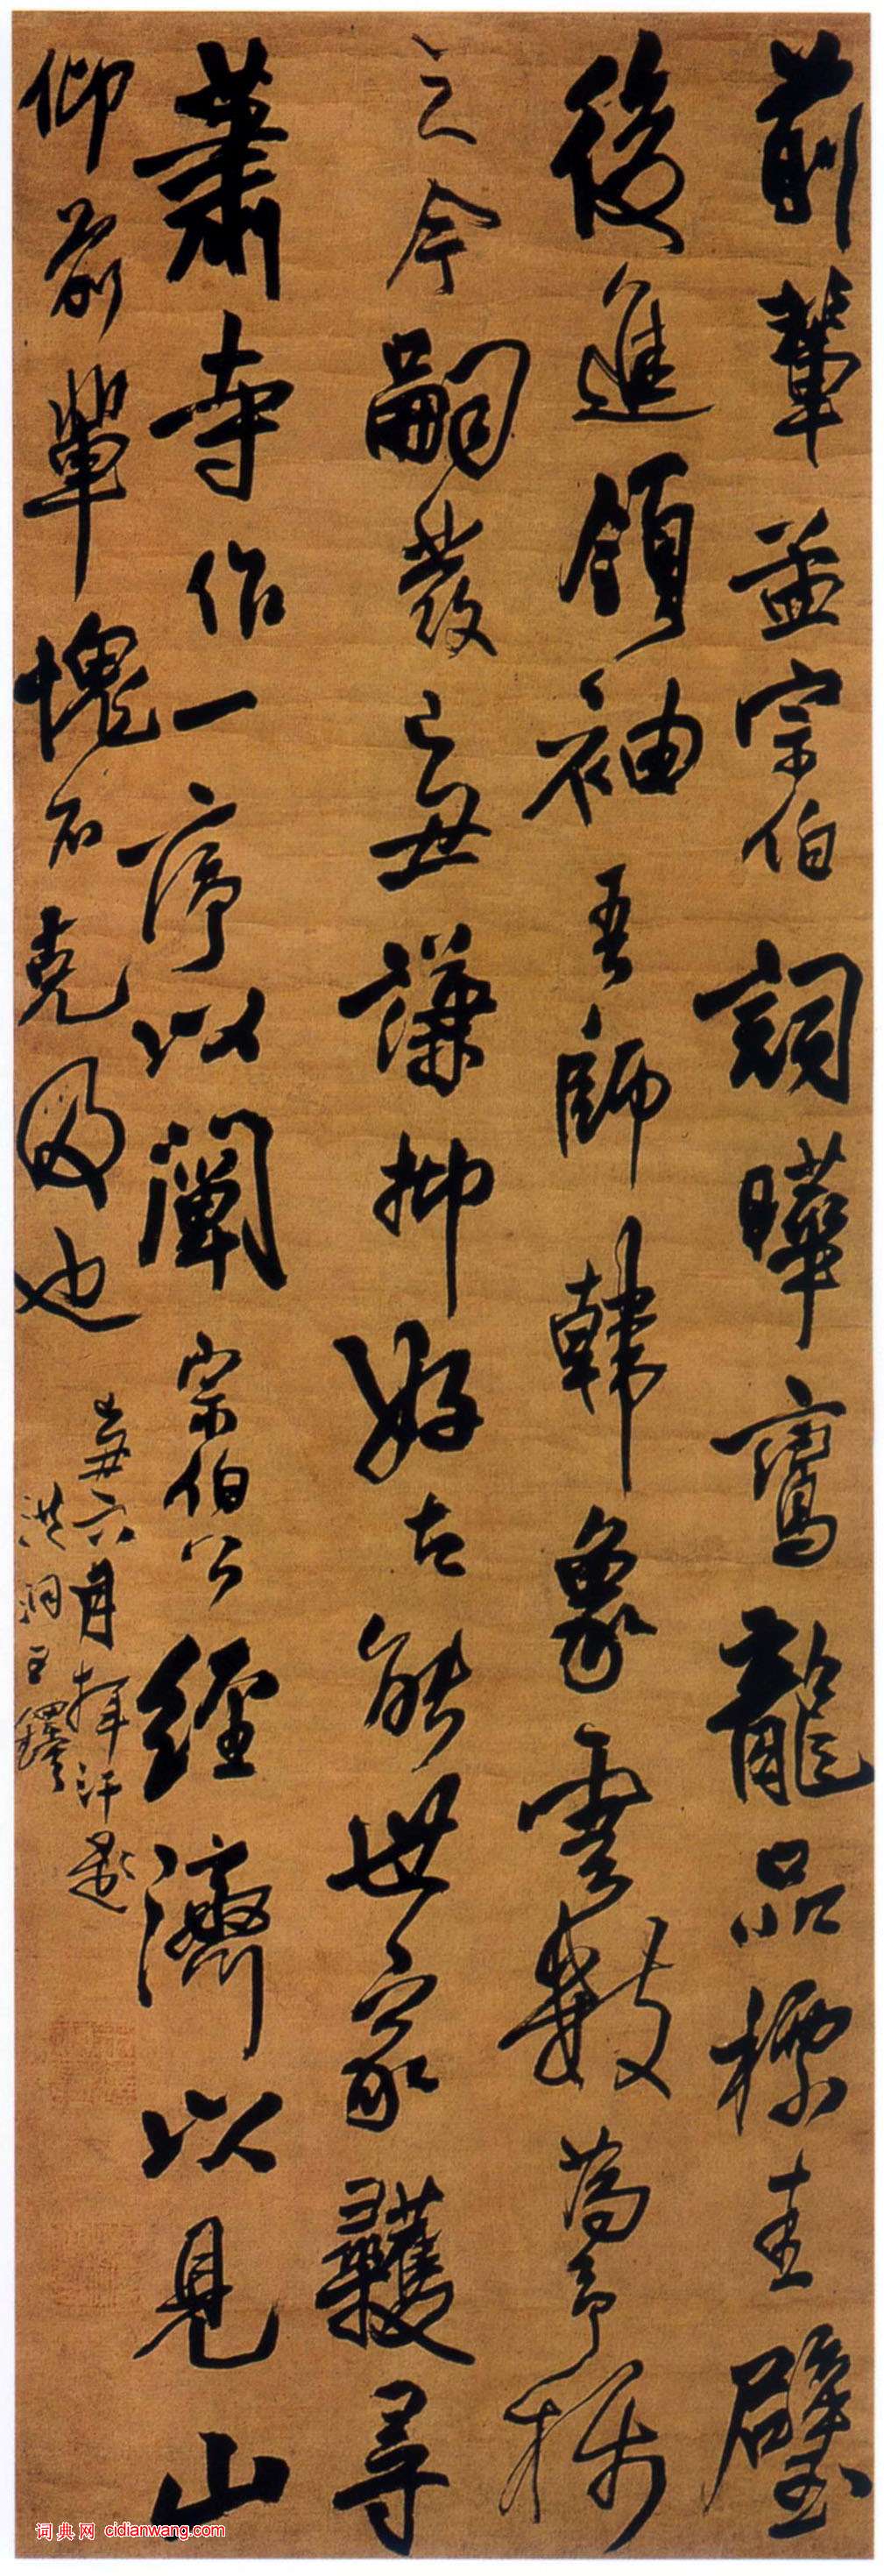 前輩孟宗伯詞曄鸞龍品標圭璧
後進領袖吾師韓象雲數為予稱
之今嗣發己丑謙抑好古能世家尋
蕭寺作一序以闡宗伯公經濟以見山
仰前輩愧不克及也
己丑六月揮汗題
洪洞王鐸
词典网 cidianwang.com